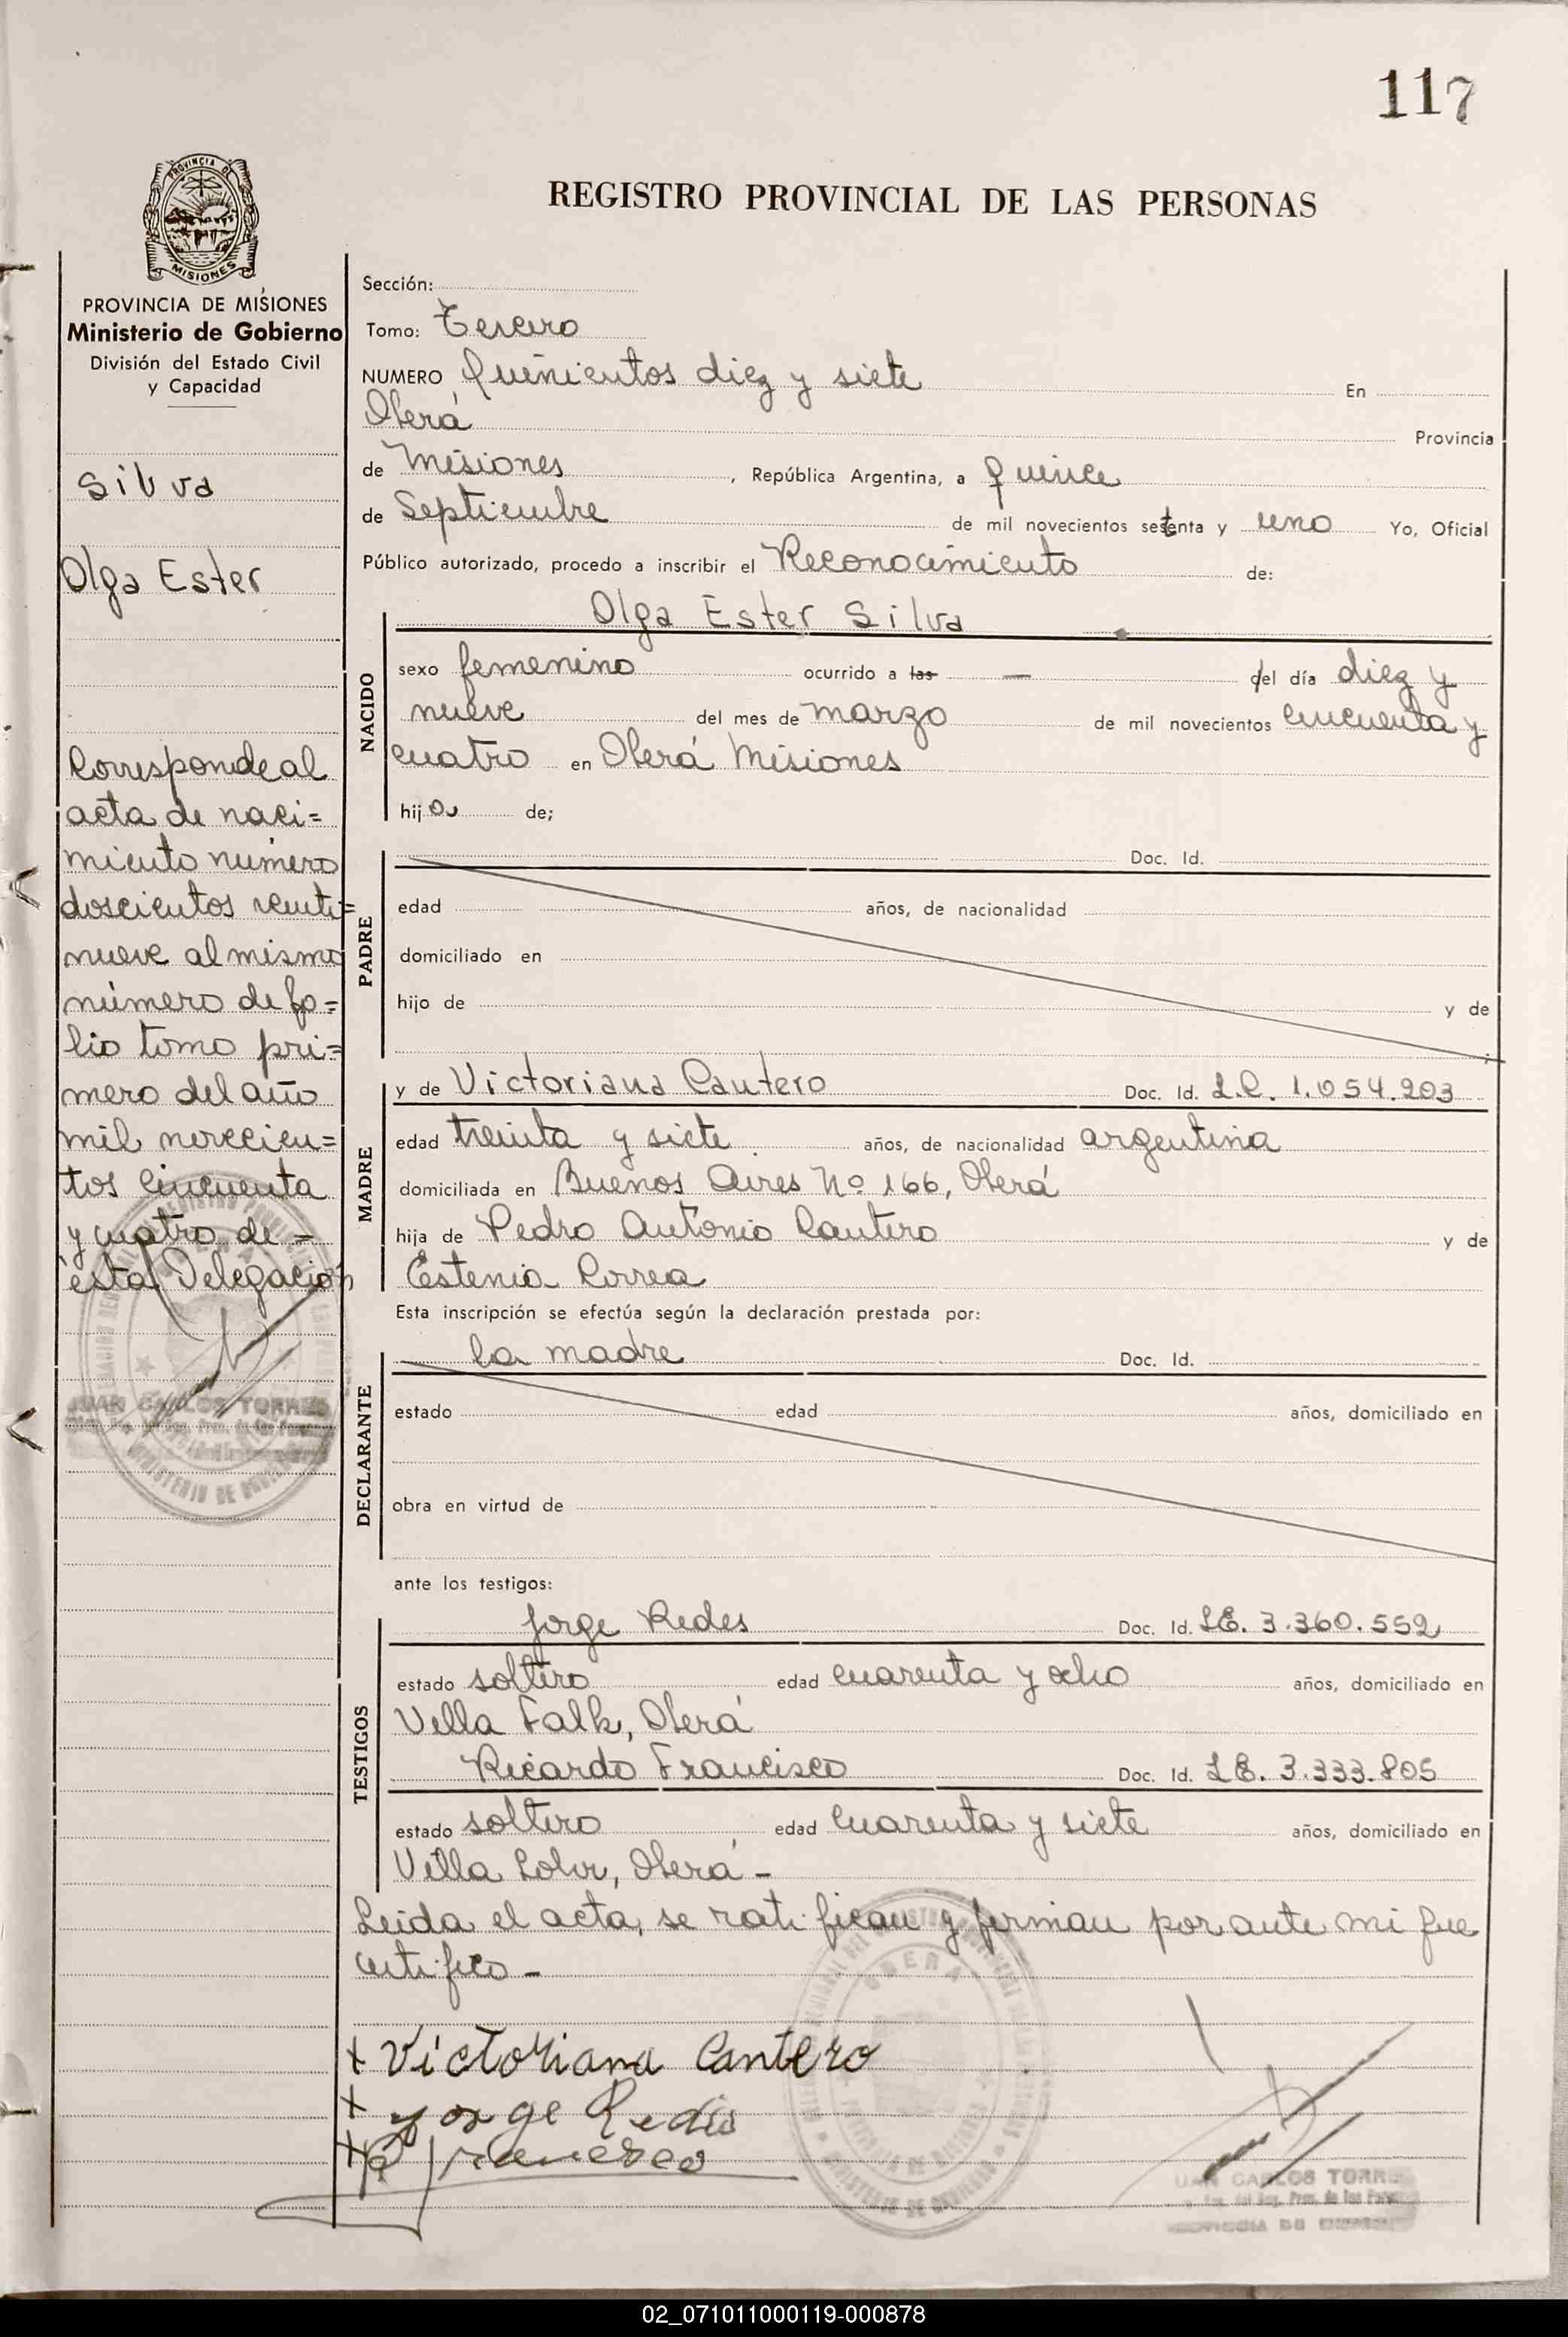 117
REGISTRO PROVINCIAL DE LAS PERSONAS
PROVINCIA DE
MISIONES
PROVINCIA DE MISIONES
Ministerio de Gobierno
División del Estado Civil
y Capacidad
Silva
Olga Ester
Corresponde al
acta de naci=
miento número
doscientos veinti=
nueve al mismo
número de fo=
lio tomo pri=
mero del año
mil novecien=
tos cincuenta
y cuatro de =
esta Delegación
JUAN CARLOS TORRES
Sección:
Tomo: Tercero
NUMERO Quinientos diez y siete En
Oberá Provincia
de Misiones, República Argentina, a quince
de Septiembre de mil novecientos setenta y uno Yo, Oficial
Público autorizado, procedo a inscribir el Reconocimiento de:
Olga Ester Silva
NACIDO
sexo femenino ocurrido a las — del día diez y
nueve del mes de marzo de mil novecientos cincuenta y
cuatro en Oberá Misiones
hija de;
PADRE
Doc. Id.
edad años, de nacionalidad
domiciliado en
hijo de y de
MADRE
y de Victoriana Cantero Doc. Id. L.C. 1.054.203
edad treinta y siete años, de nacionalidad argentina
domiciliada en Buenos Aires Nº 166, Oberá
hija de Pedro Antonio Cantero y de
Estenia Correa
Esta inscripción se efectúa según la declaración prestada por:
DECLARANTE
la madre Doc. Id.
estado edad años, domiciliado en
obra en virtud de
ante los testigos:
TESTIGOS
Jorge Redes Doc. Id. LE. 3.360.552
estado soltero edad cuarenta y ocho años, domiciliado en
Villa Falk, Oberá
Ricardo Francisco Doc. Id. LE. 3.333.805
estado soltero edad cuarenta y siete años, domiciliado en
Villa Lohr, Oberá -
Leida el acta, se ratifican y firman por ante mi que
certifico -
OBERA
MINISTERIO DE GOBIERNO
x Victoriana Cantero
x Jorge Redis
x R Francisco
JUAN CARLOS TORRES
02_071011000119-000878